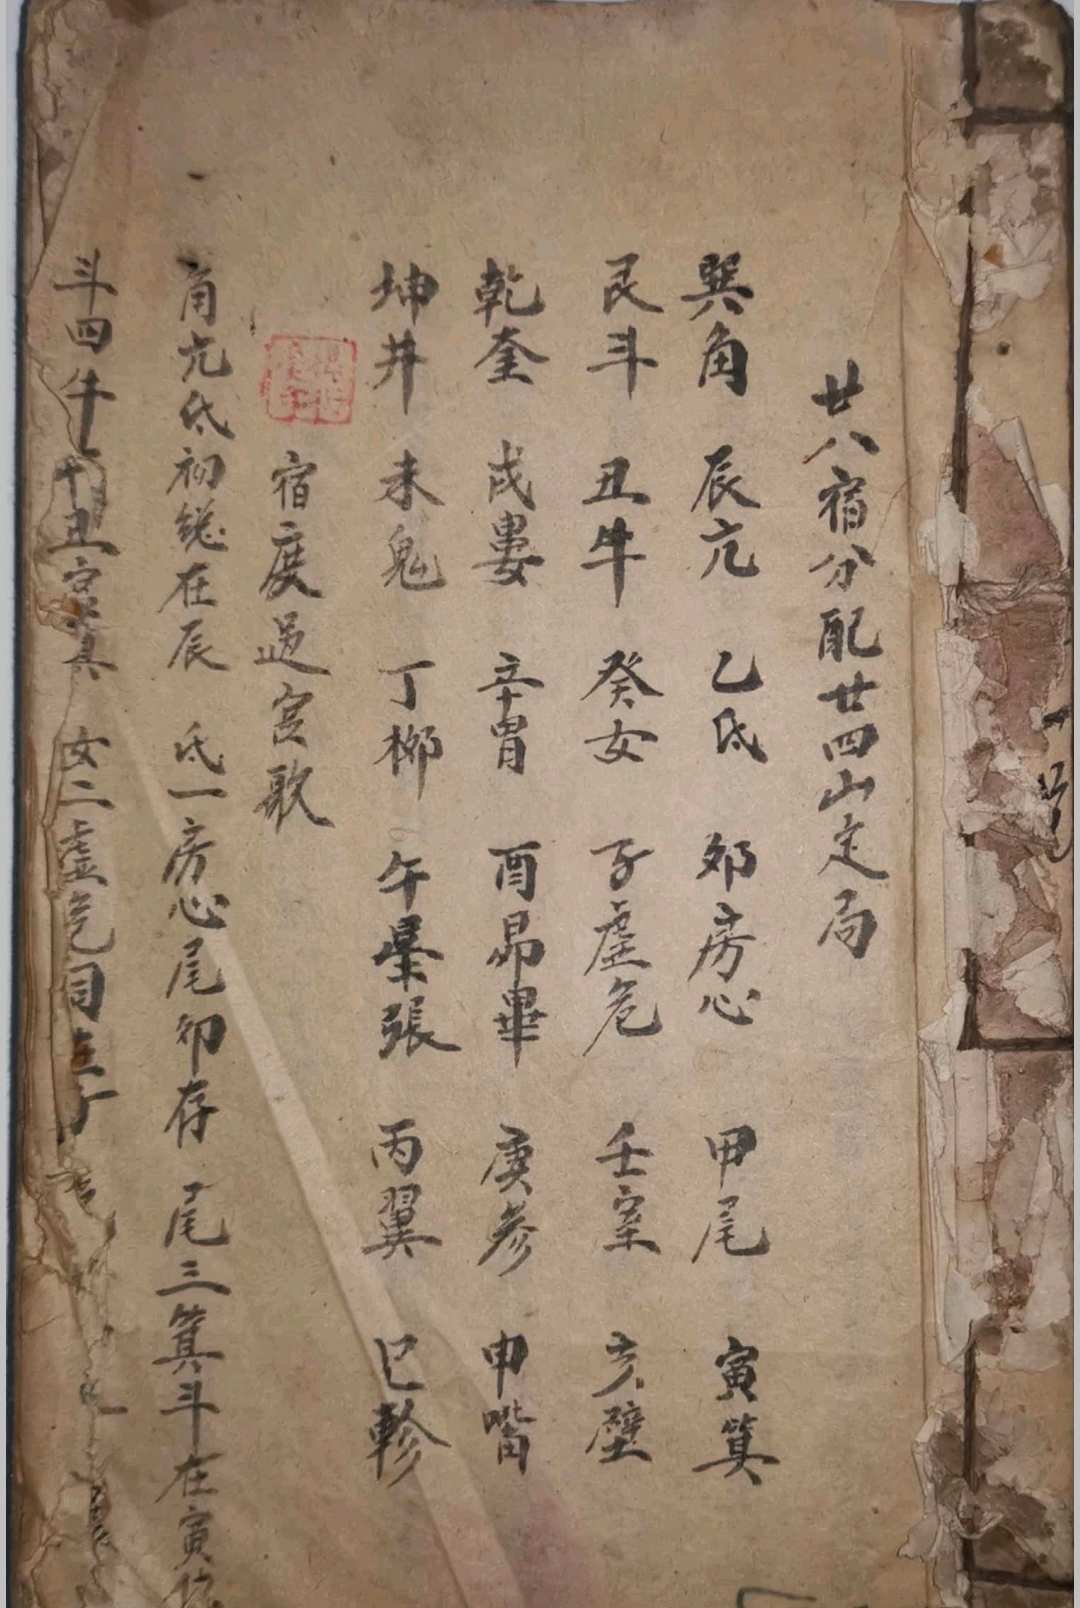 廿八宿分配廿四山定局
巽角 辰亢 乙氐 卯房心 甲尾 寅箕
艮斗 丑牛 癸女 子虛危 壬室 亥壁
乾奎 戌婁 辛胃 酉昴畢 庚參 申嘴
坤井 未鬼 丁柳 午星張 丙翼 巳軫
宿度过宮歌
角亢氐初總在辰 氐一房心尾卯存 尾三箕斗在寅
斗四牛 丑宮 女二虛危同